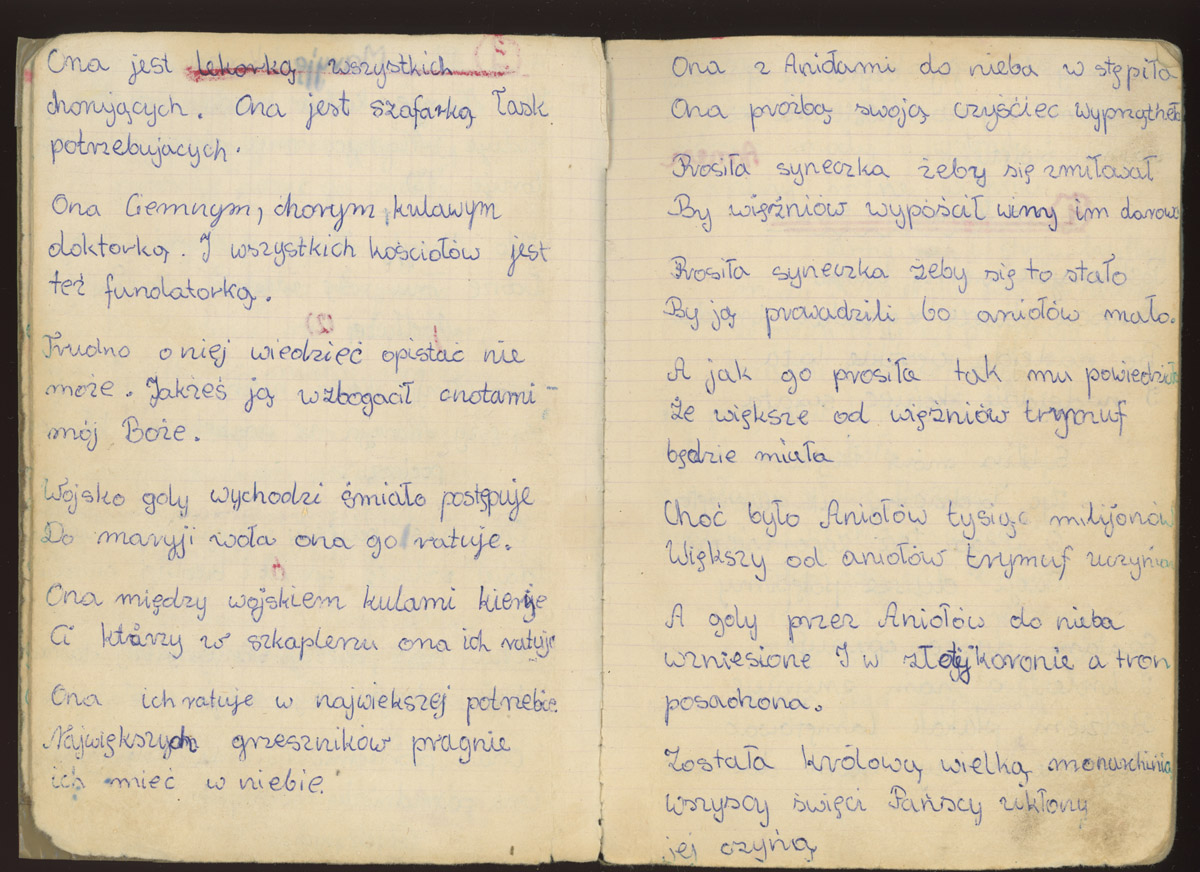 Ona jest lekorką wszystkich
chorujących. Ona jest szafarką łask
potrzebujacych.
Ona Ciemnym, chorym, kulawym
doktorką. I wszystkich kościołów jest
też fundatorką.
Trudno o niej wiedzieć opistać nie
może. Jakżeś ją wzbogacił cnotami
mój Boże.
Wojsko gdy wychodzi śmiało postępuje
Do maryji woła ona go ratuje.
Ona między wojskiem kulami kieruje
Ci którzy w szkaplerzu ona ich ratuje
Ona ich ratuje w najwiekszej potrzebie.
Największych grzeszników pragnie
ich mieć w niebie.
Ona z Aniołami do nieba wstępiła
Ona prożbą swoją czyśćiec
Prosiła syneczka żeby się zmiłował
By więźniów wypóścił winy im darow
Prosiła syneczka żeby się to stało
By ją prowadzili bo aniołów mało.
A jak go prosiła tak mu
Że większe od więźniów trymuf
będzie miała
Choć było Aniołów tysiąc milijonów
Większy od aniołów trymuf
A gdy przez Aniołów do nieba
wzniesione I w złotyj koronie a tron
posadzona.
Została królową wielką monarchinią
wszyscy święci Pańscy
jej czynią